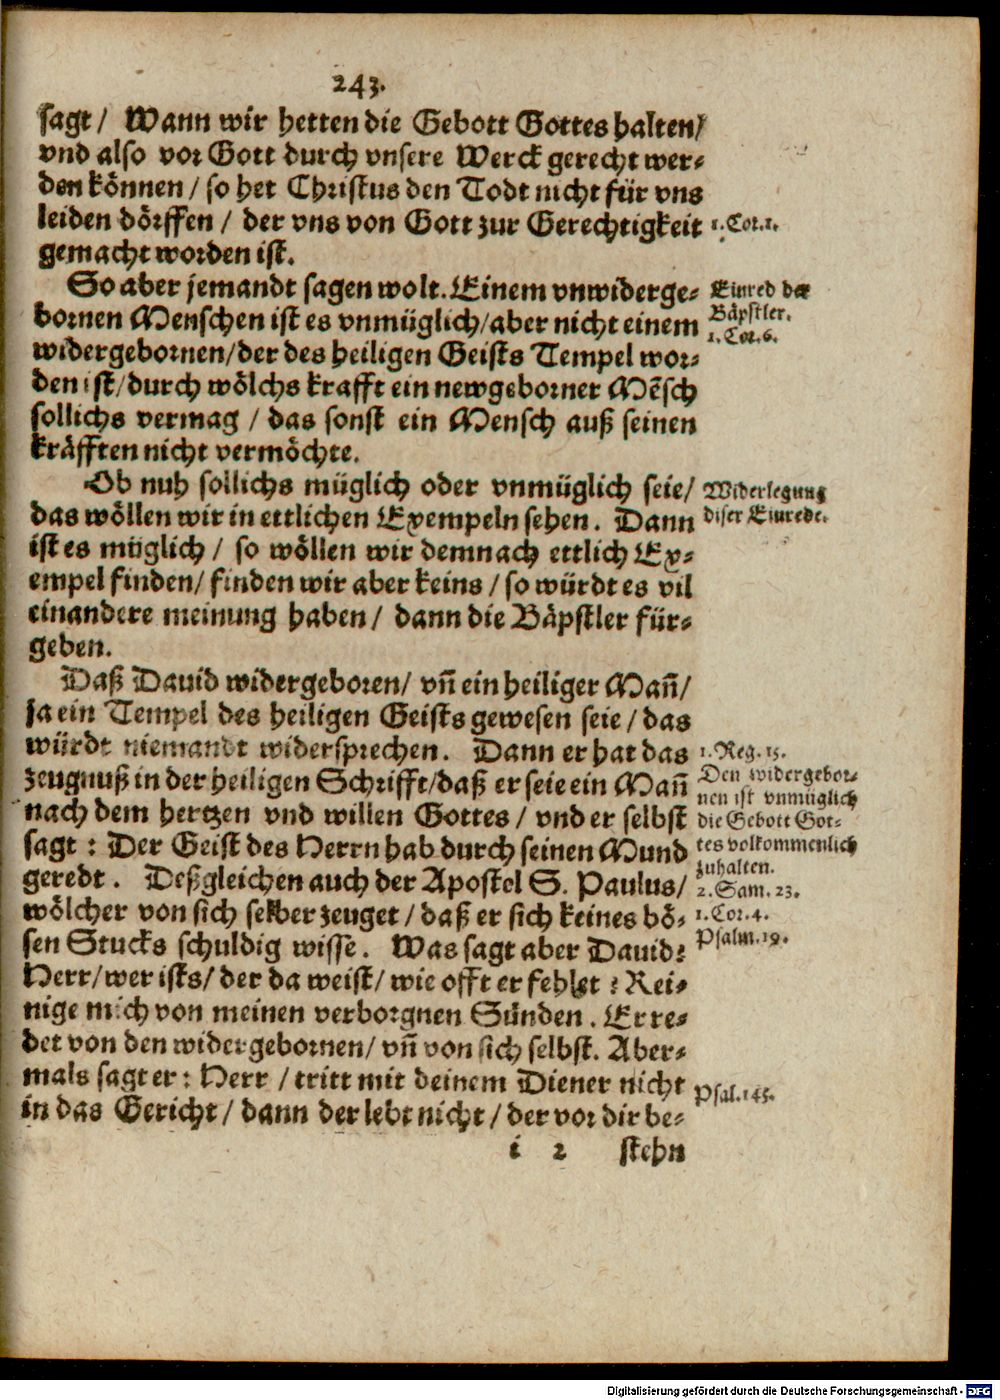 243.
sagt/ Wann wir hetten die Gebott Gottes halten/
vnd also vor Gott durch vnsere Werck gerecht wer-
den können / so het Christus den Todt nicht für vns
leiden dörffen / der vns von Gott zur Gerechtigkeit
1. Cor. 1.
gemacht worden ist.
So aber jemandt sagen wolt. Einem vnwiderge-
bornen Menschen ist es vnmüglich/aber nicht einem
widergebornen/der des heiligen Geists Tempel wor-
den ist/durch wölchs krafft ein newgeborner Mẽsch
sollichs vermag / das sonst ein Mensch auß seinen
kräfften nicht vermöchte.
Einred der
Bäpstler.
1. Cor. 6.
Ob nuh sollichs müglich oder vnmüglich seie/
das wöllen wir in ettlichen Exempeln sehen. Dann
ist es müglich / so wöllen wir demnach ettlich Ex-
empel finden/ finden wir aber keins / so würdt es vil
ein andere meinung haben / dann die Bäpstler für-
geben.
Widerlegung
diser Einrede.
Daß Dauid widergeboren/ vñ ein heiliger Mañ/
ja ein Tempel des heiligen Geists gewesen seie / das
würdt niemandt widersprechen. Dann er hat das
zeugnuß in der heiligen Schrifft/daß er seie ein Mañ
nach dem hertzen vnd willen Gottes / vnd er selbst
sagt : Der Geist des Herrn hab durch seinen Mund
geredt. Deßgleichen auch der Apostel S. Paulus/
wölcher von sich selber zeuget / daß er sich keines bö-
sen Stucks schuldig wisse. Was sagt aber Dauid?
Herr/wer ists/ der da weist/ wie offt er fehlet ? Rei-
nige mich von meinen verborgnen Sünden. Er re-
det von den widergebornen/ vñ von sich selbst. Aber-
mals sagt er : Herr / tritt mit deinem Diener nicht
in das Gericht / dann der lebt nicht / der vor dir be-
1. Reg. 15.
Den widergebor-
nen ist vnmüglich
die Gebott Got-
tes volkommenlich
zuhalten.
2. Sam. 23.
1. Cor. 4.
Psalm. 19.
Psal. 143.
i 2 stehn
Digitalisierung gefördert durch die Deutsche Forschungsgemeinschaft - DFG